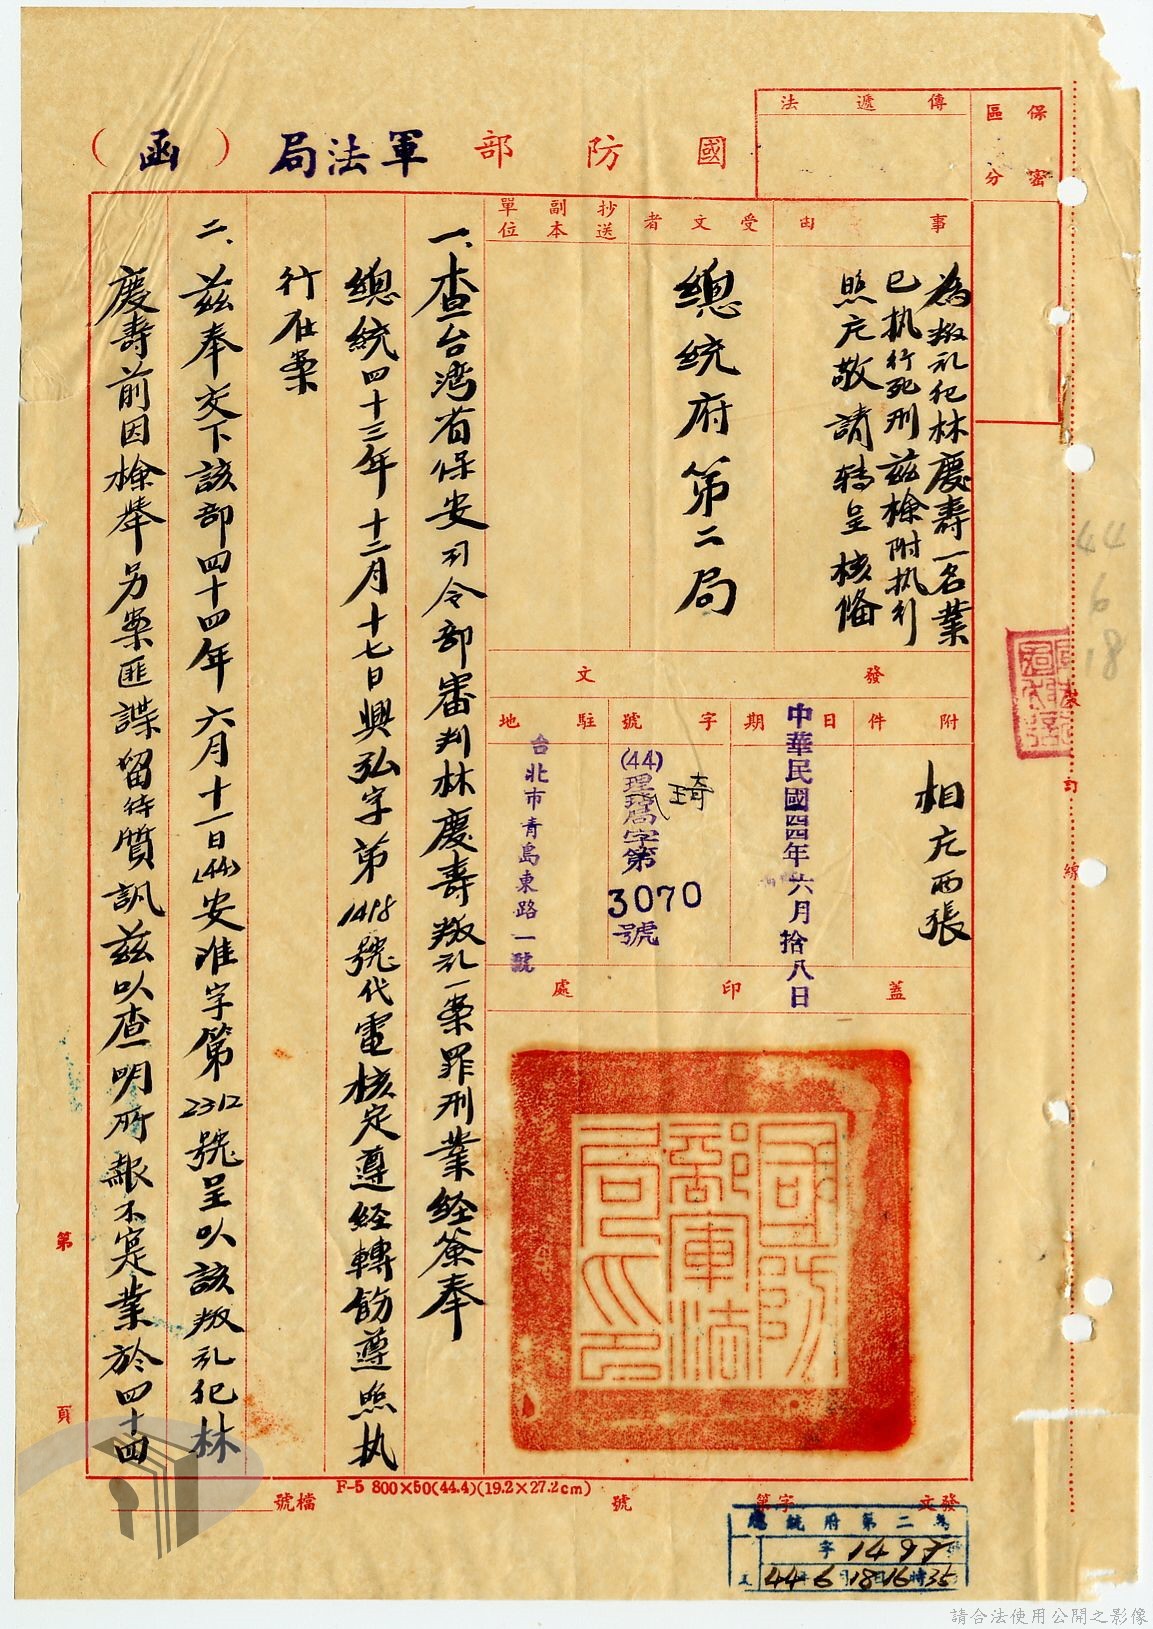 國防部軍法局（函）
保密區分
傳遞法
事由
為叛亂犯林慶壽一名業
已執行死刑茲檢附執刑
照片敬請轉呈核備
受文者
總統府第二局
抄送副本單位
發文
附件
相片兩張
日期
中華民國四四年六月拾八日
字號
(44)
理琦局字第
琦
3070
號
駐地
台北市青島東路一號
蓋印處
國防部軍法局印
一、查台灣省保安司令部審判林慶壽叛亂一案罪刑業経簽奉
總統四十三年十二月十七日興弘字第1418號代電核定遵経轉飭遵照执
行在案
二、茲奉交下該部四十四年六月十一日(44)安准字第2312號呈以該叛乱犯林
慶壽前因檢舉另案匪諜留待質訊茲以查明所報不寔業於四十四
裝訂線
44
6
18
第頁
F-5 800×50(44.4)(19.2×27.2cm)
檔號
發文字第號
總統府第二局
字
44年6月18日16時35
請合法使用公開之影像